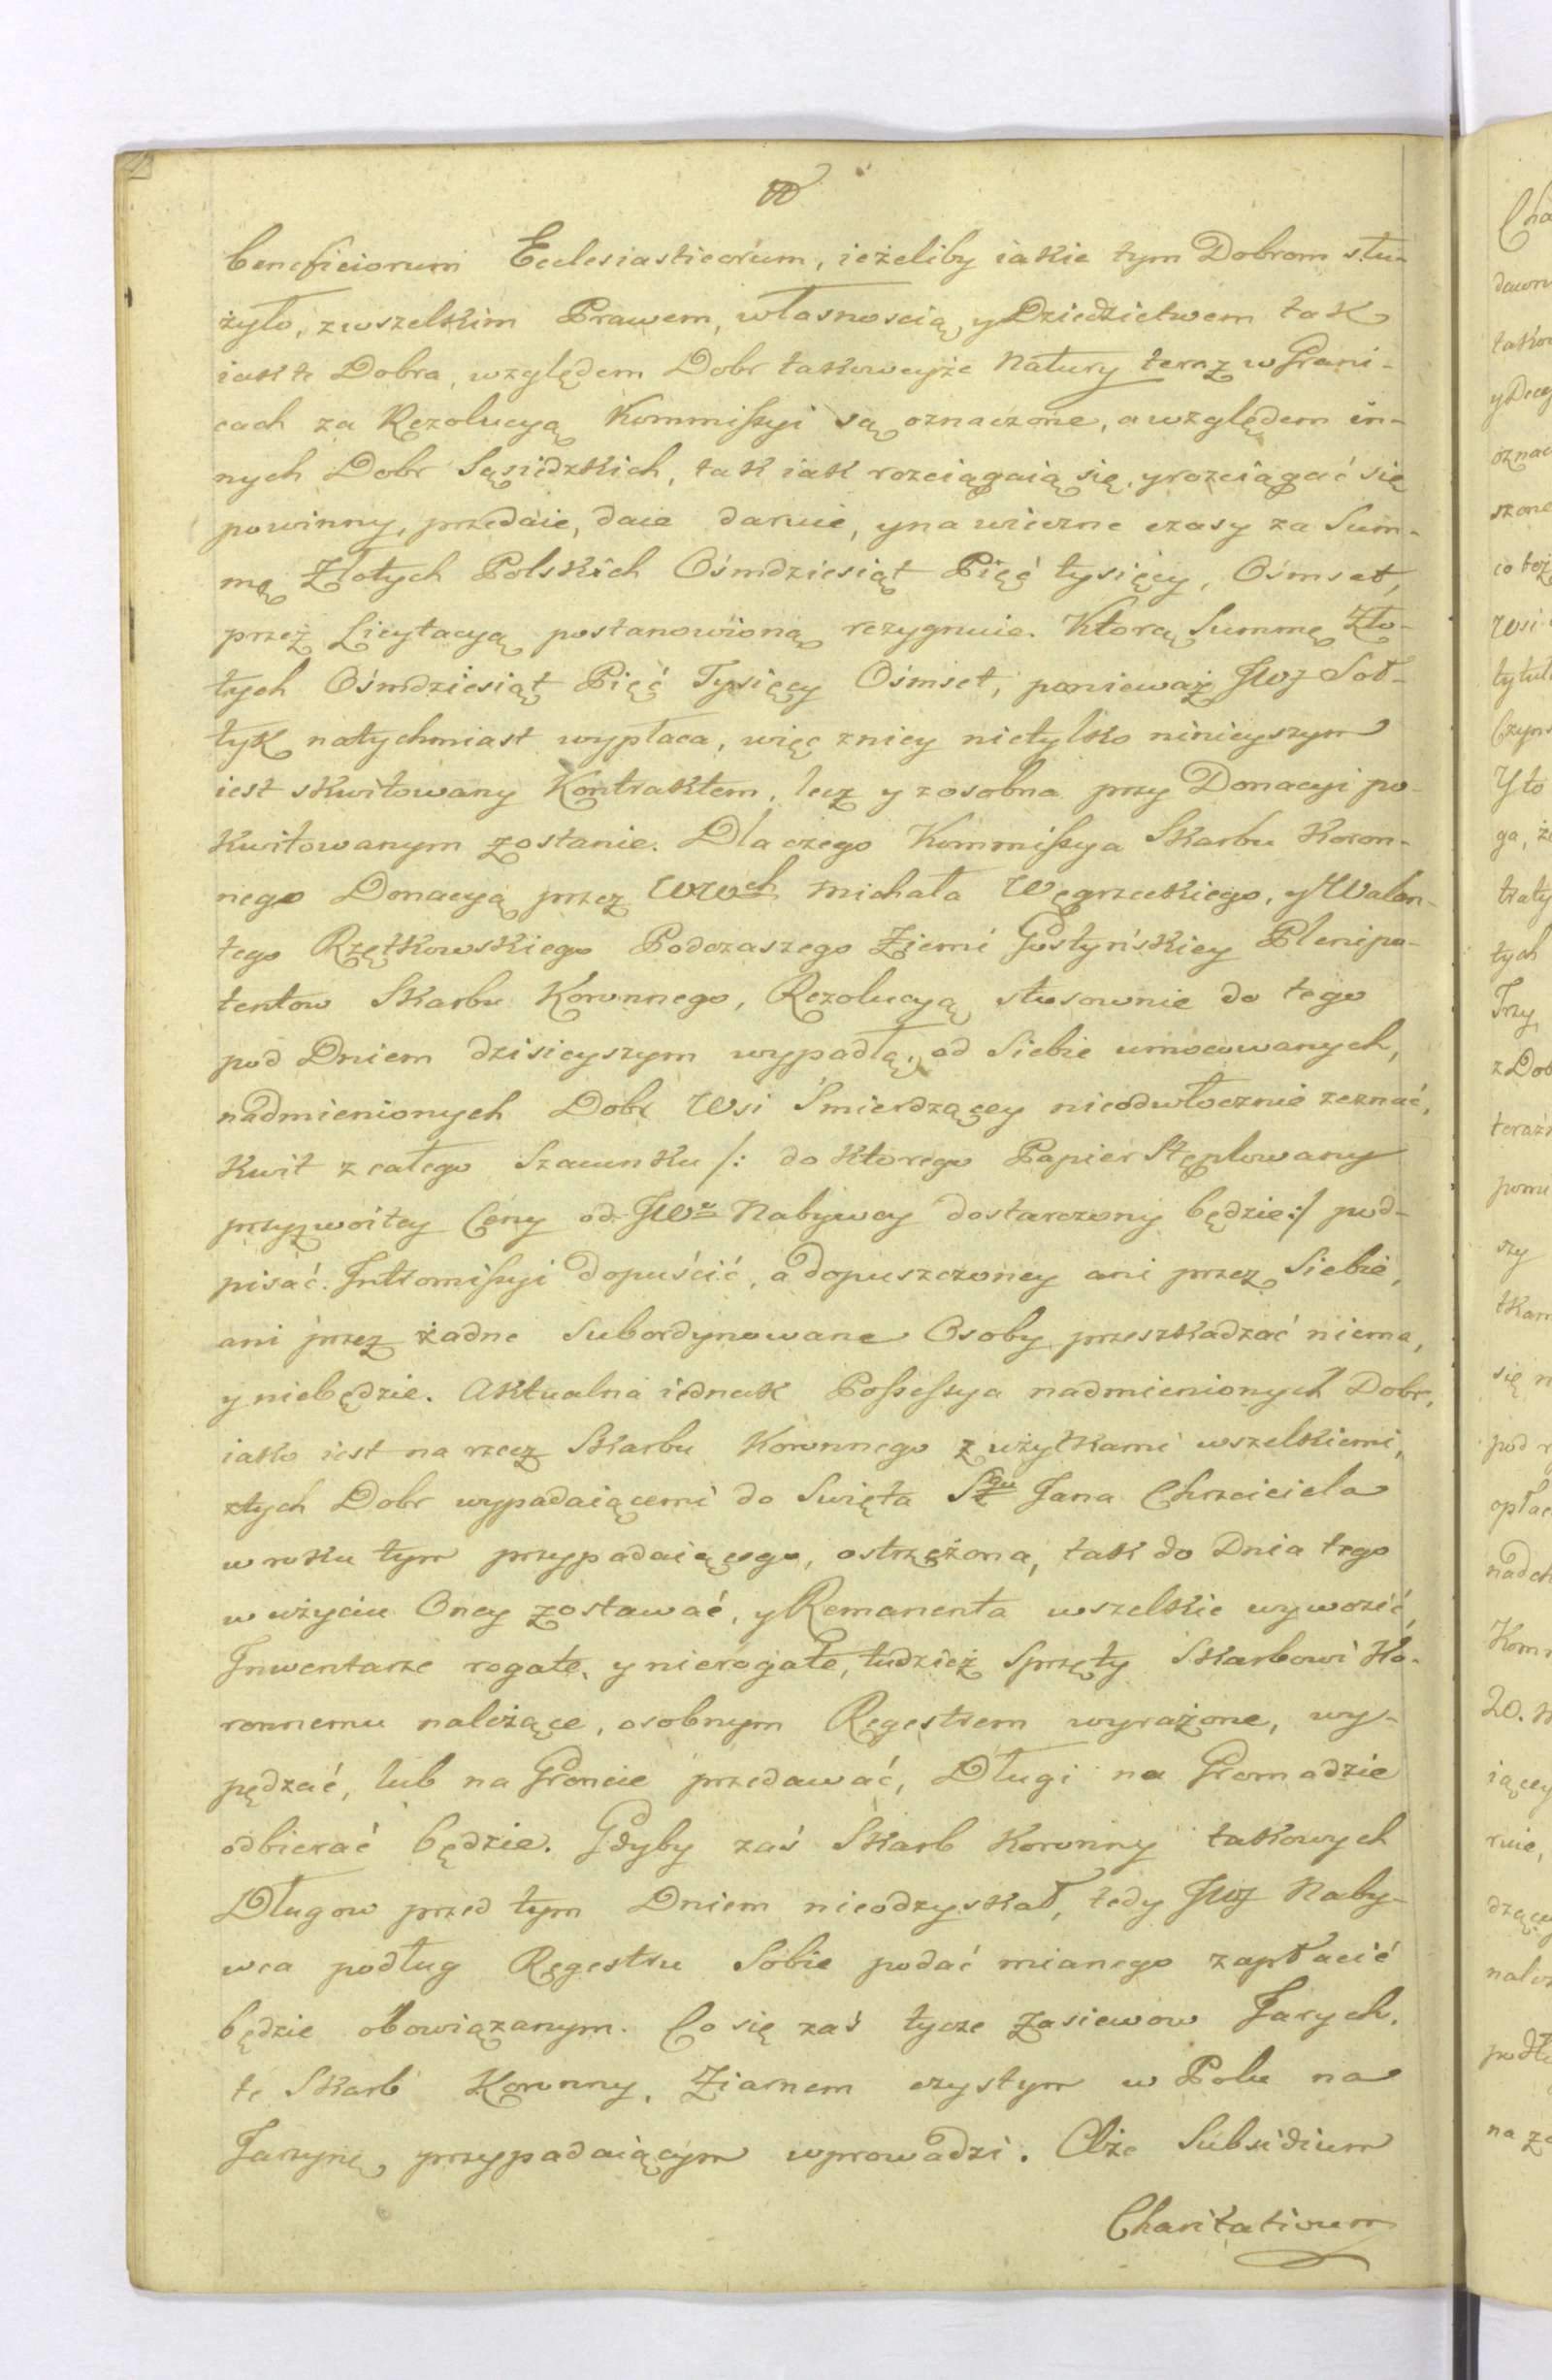 beneficiorum Ecclesiasticorum, ieżeliby iakie tym Dobrom słu-
żyło, zwszelkim Prawem, własnoscią, y Dziedzictwem tak
iak te Dobra, względem Dobr takoweyże Natury teraz w Grani-
cach za Rezolucyą Kommissyi są oznaczone, a względem in-
nych Dobr Sąsiedzkich, tak iak rozciągaią się, y rozciągać się
powinny, przedaie, daie daruie, y na wieczne czasy za Sum-
mę Złotych Polskich Ośmdziesiąt Pięć tysięcy, Ośmset,
przez Licytacyą postanowioną rezygnuie. Ktorą Summę Zło-
tych Ośmdziesiąt Pięć Tysięcy Ośmset, ponieważ JWJ Soł-
tyk natychmiast wypłaca, więc zniey nietylko ninieyszym
iest skwitowany Kontraktem, lecz y zosobna przy Donacyi po-
kwitowanym zostanie. Dla czego Kommissya Skarbu Koron-
nego Donacyą przez WWch Michała Węgrzeckiego, y Walen-
tego Rzętkowskiego Podczaszego Ziemi Gostyńskiey Plenipo-
tentow Skarbu Koronnego, Rezolucyą stosownie do tego
pod Dniem dzisieyszym wypadłą, od Siebie umocowanych,
nadmienionych Dobr Wsi Smierdzącey nieodwłocznie zeznać,
Kwit z całego Szacunku /: do ktorego Papier Stęplowany
przyzwoitey Ceny od JWo Nabywcy dostarczony będzie :/ pod-
pisać. Intromissyi dopuścić, a dopuszczoney ani przez Siebie,
ani przez żadne Subordynowane Osoby przeszkadzać niema,
y niebędzie. Aktualna iednak Possessya nadmienionych Dobr,
iako iest na rzecz Skarbu Koronnego z użytkami wszelkiemi,
ztych Dobr wypadaiącemi do Swięta Sgo Jana Chrzciciela
w roku tym przypadaiącego, ostrzeżona, tak do Dnia tego
w użyciu Oney zostawać, y Remanenta wszelkie wywozić,
Inwentarze rogate, y nierogate, tudzież Sprzęty Skarbowi Ko-
ronnemu należące, osobnym Regestrem wyrażone, wy-
pędzać, lub na Groncie przedawać, Długi na Gromadzie
odbierać będzie. Gdyby zaś Skarb Koronny takowych
Długow przed tym Dniem nieodzyskał, tedy JWJ Naby-
wca podług Regestru Sobie podać mianego zapłacić
będzie obowiązanym. Co się zaś tycze Zasiewow Jarych,
te Skarb Koronny, Ziarnem czystym w Polu na
Jarzynę przypadaiącym wprowadzi. A że Subsidium
Charitativum